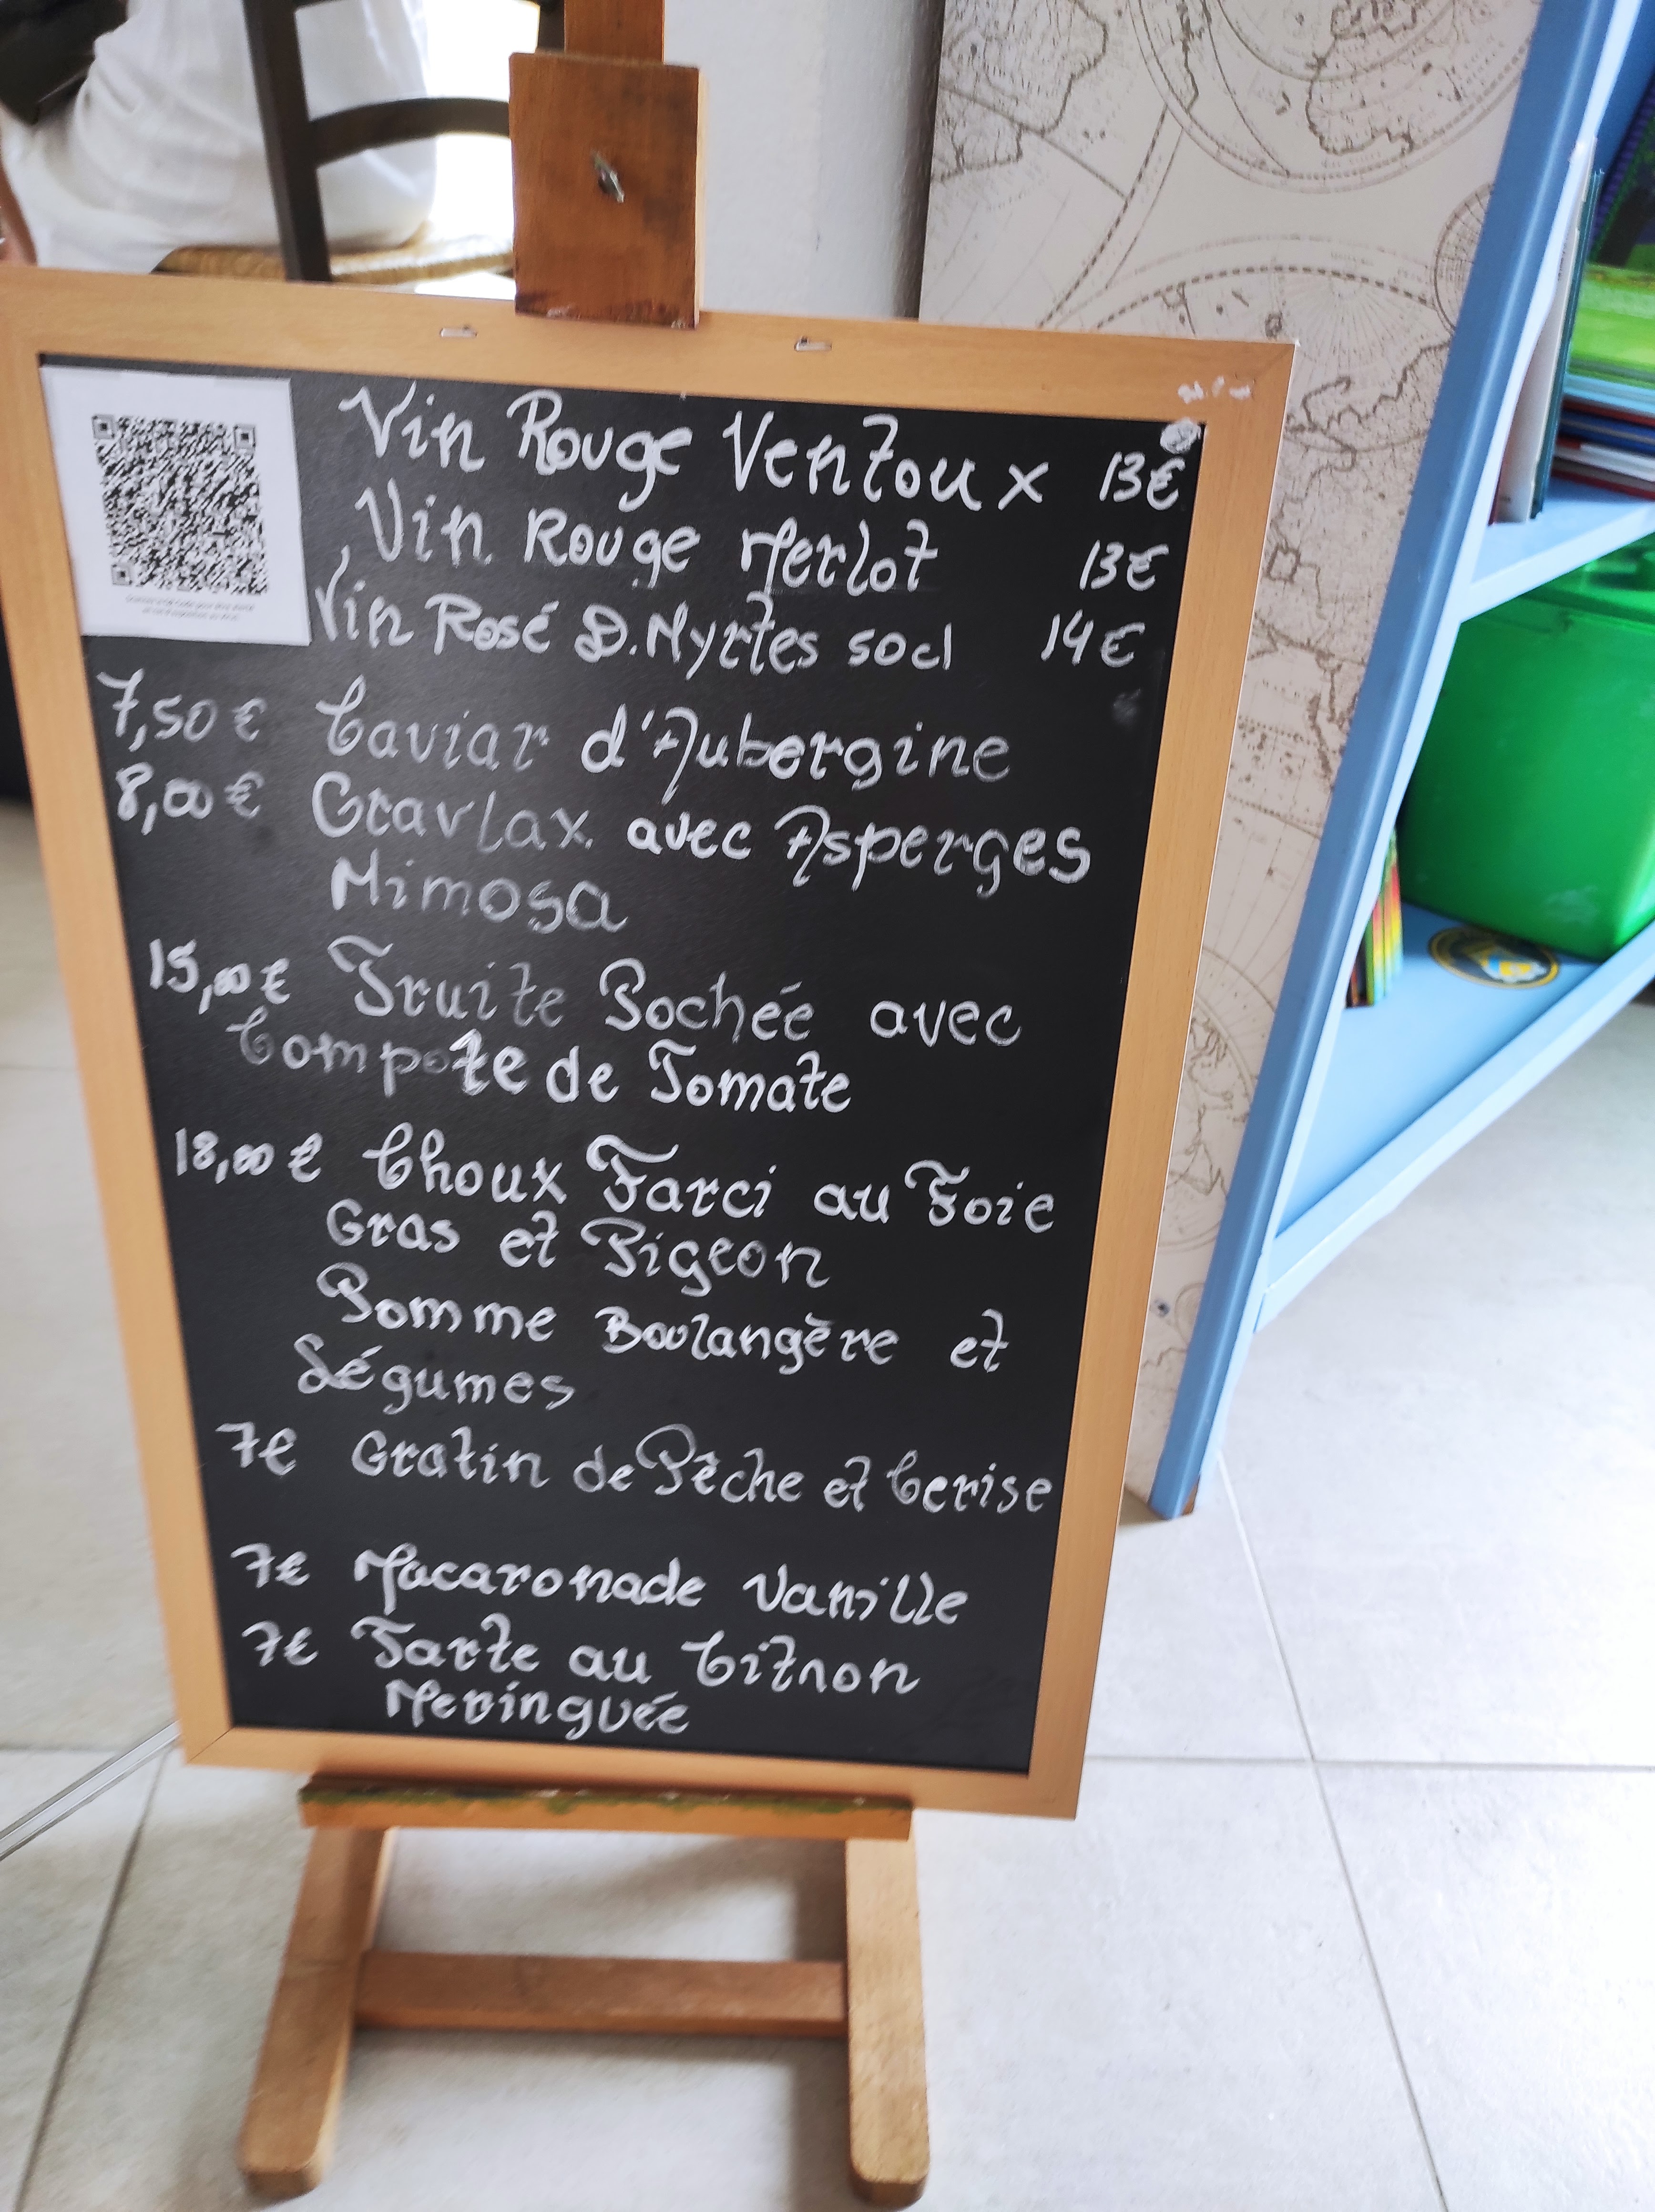 Vin Rouge Ventoux 13€
Vin Rouge Merlot 13€
Vin Rosé D.Myrtes 50cl 14€
7,50€ Caviar d'Aubergine
8,00€ Gravlax avec Asperges
Mimosa
15,00€ Truite Pochée avec
Compote de Tomate
18,00€ Choux Farci au Foie
Gras et Pigeon
Pomme Boulangère et
Légumes
7€ Gratin de Pêche et Cerise
7€ Macaronade Vanille
7€ Tarte au Citron
Meringuée